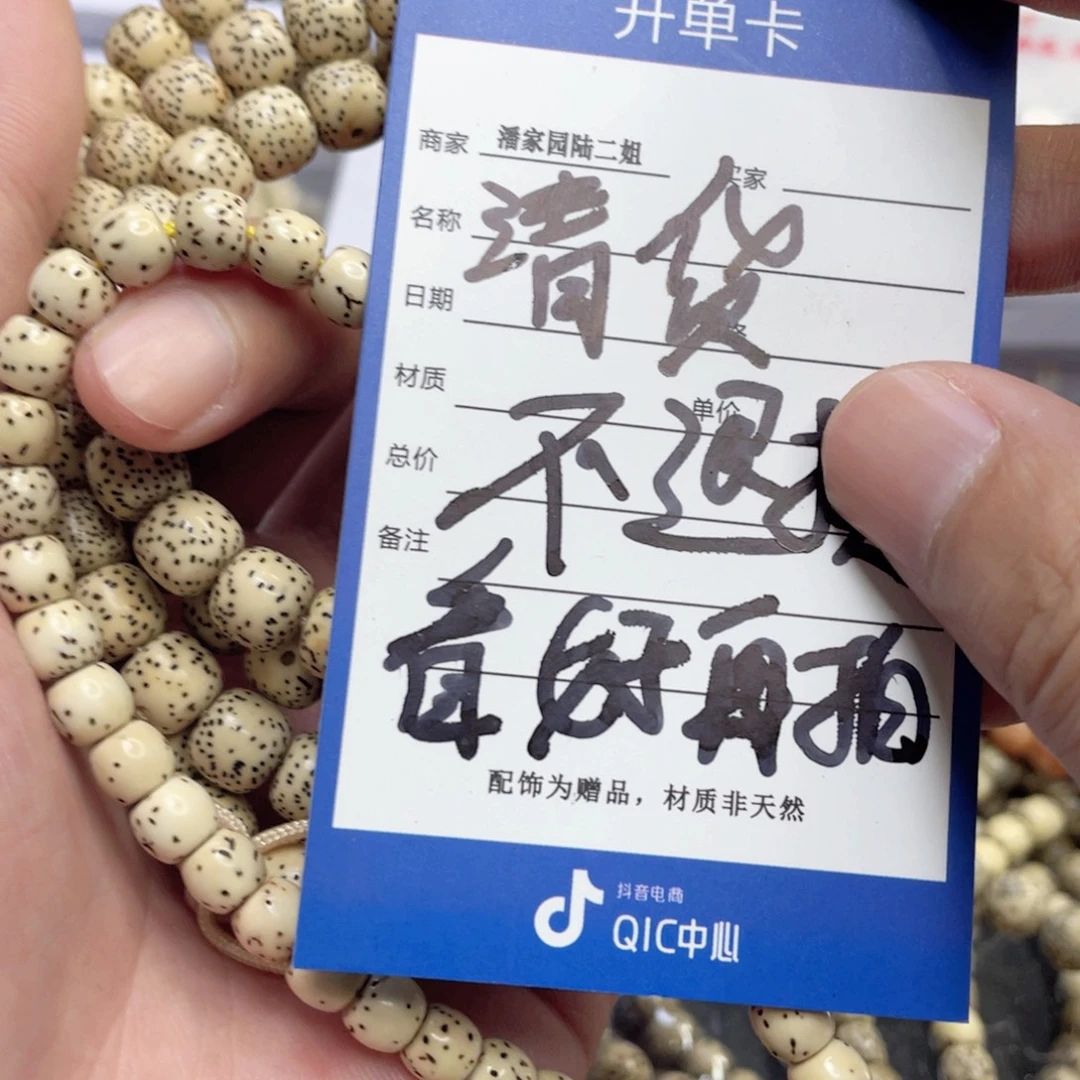 开单卡
商家 潘家园陆二姐 买家
名称 清货
日期
材质 不退 单价
总价
备注
看好再拍
配饰为赠品，材质非天然
抖音电商
QIC中心